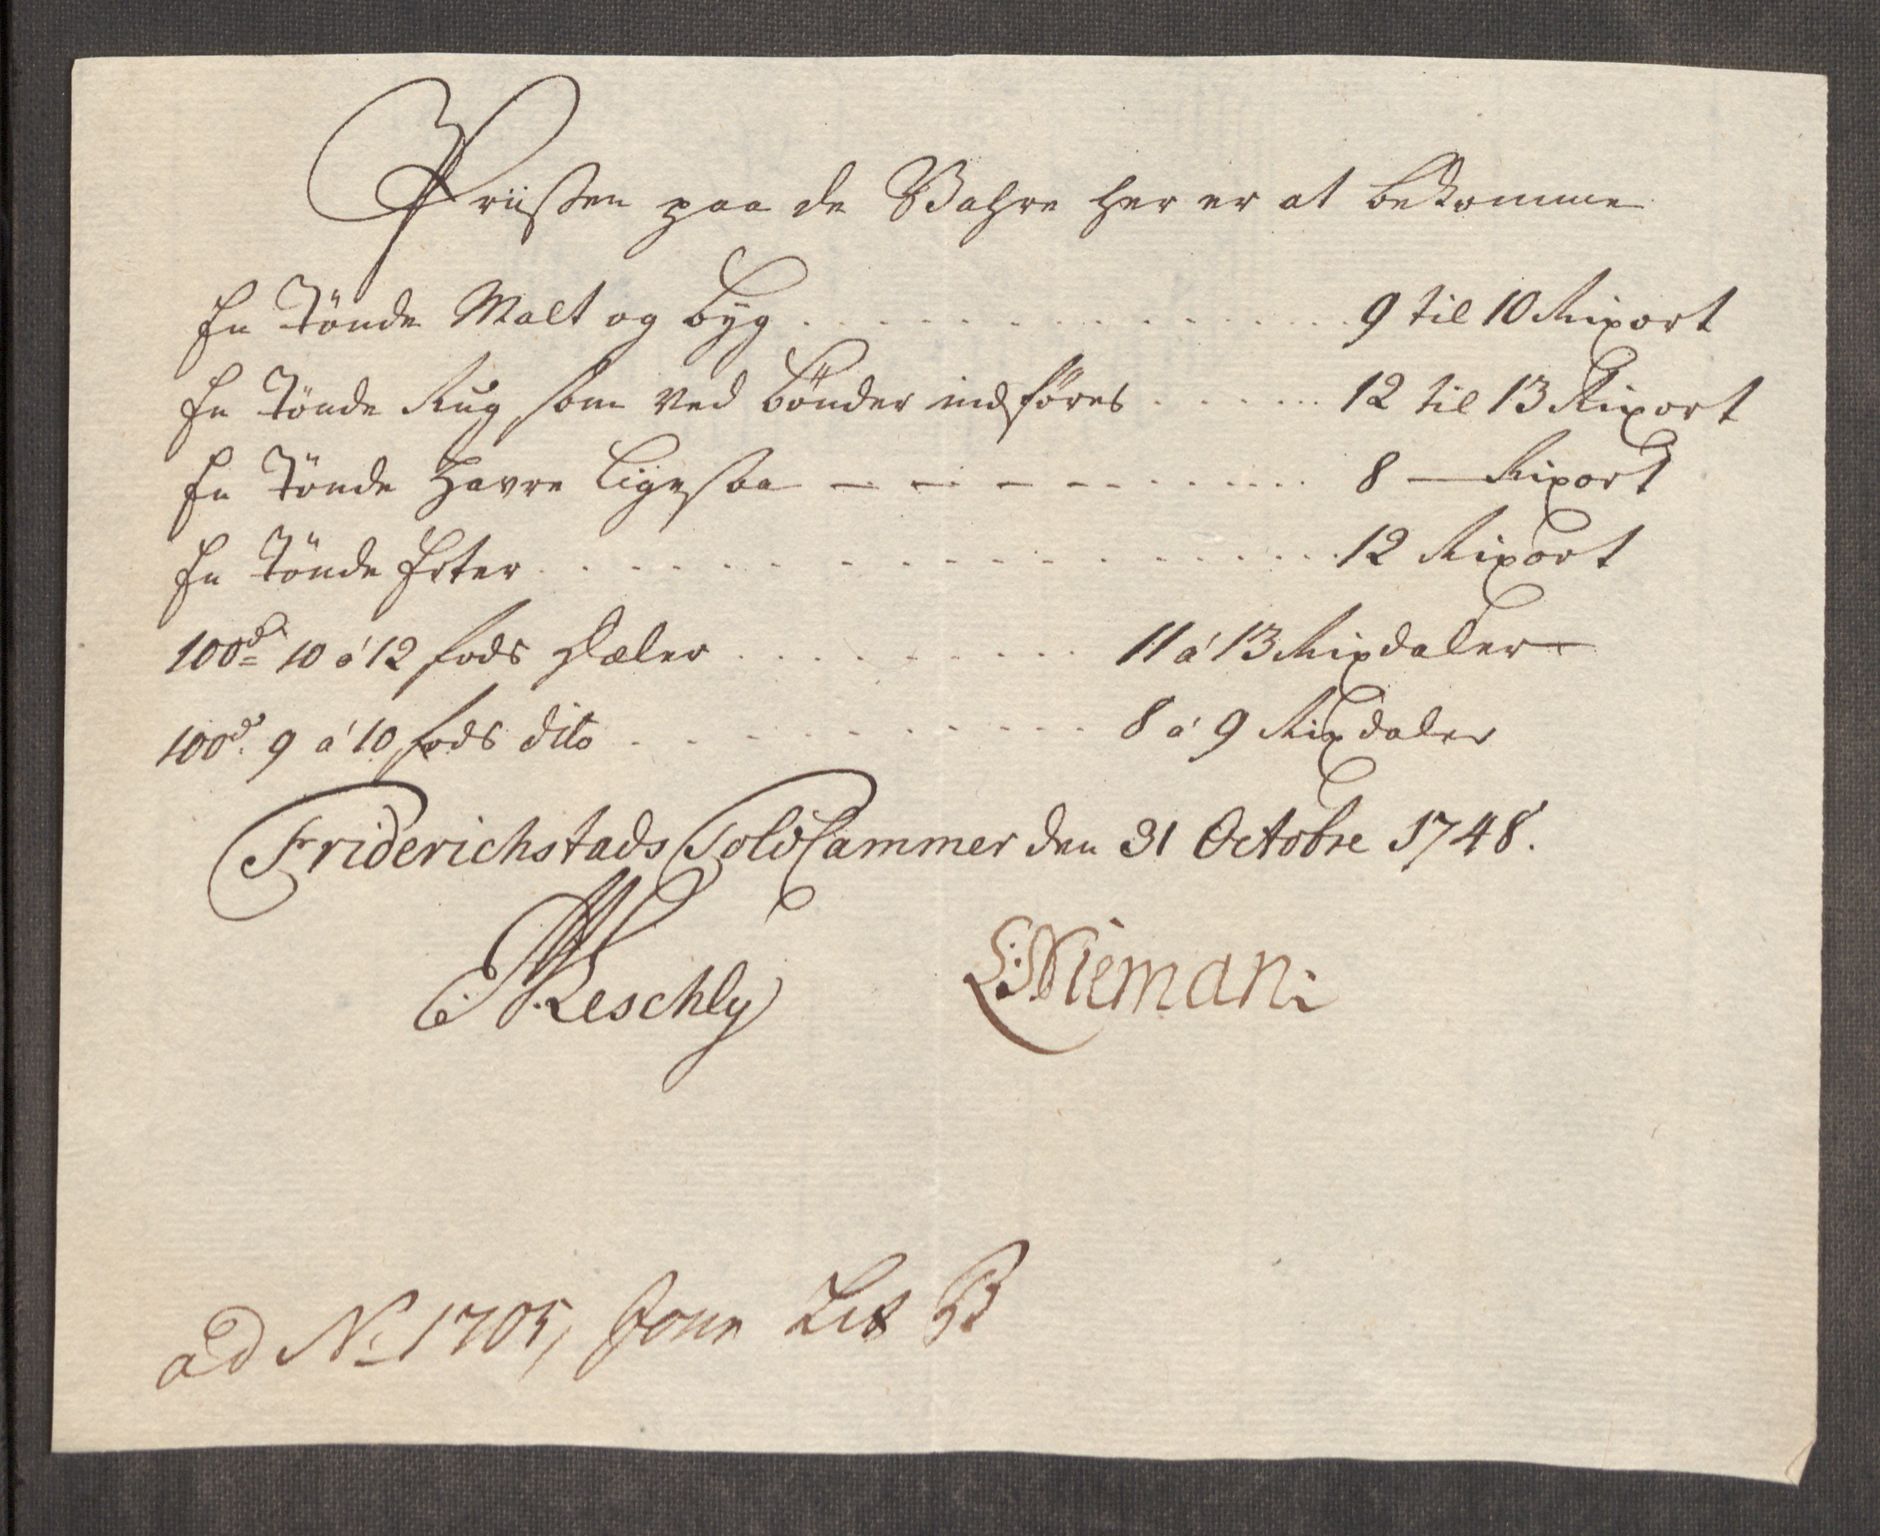 Priissen paa de Vahre her er at bekomme
En Tönde Malt og byg . . . . . . . . . . . . 9 til 10 Rixort
En Tönde Rug som ved bönder indföres . . . . . . 12 til 13 Rixort
En Tönde Havre ligesaa — — — — - - . . . . . 8 — Rixort
En Tönde Erter . . . . . . . . . . . . . . . 12 Rixort
100d 10 á 12 fods Dæler . . . . . . . . . 11 á 13 Rixdaler
100d. 9 á 10 fods dito . . . . . . . . . . 8 á 9 Rixdaler
Friderichstads Told Cammer den 31 Octobre 1748.
Reschly L: Nieman:
ad No 1705, Jour Lit B